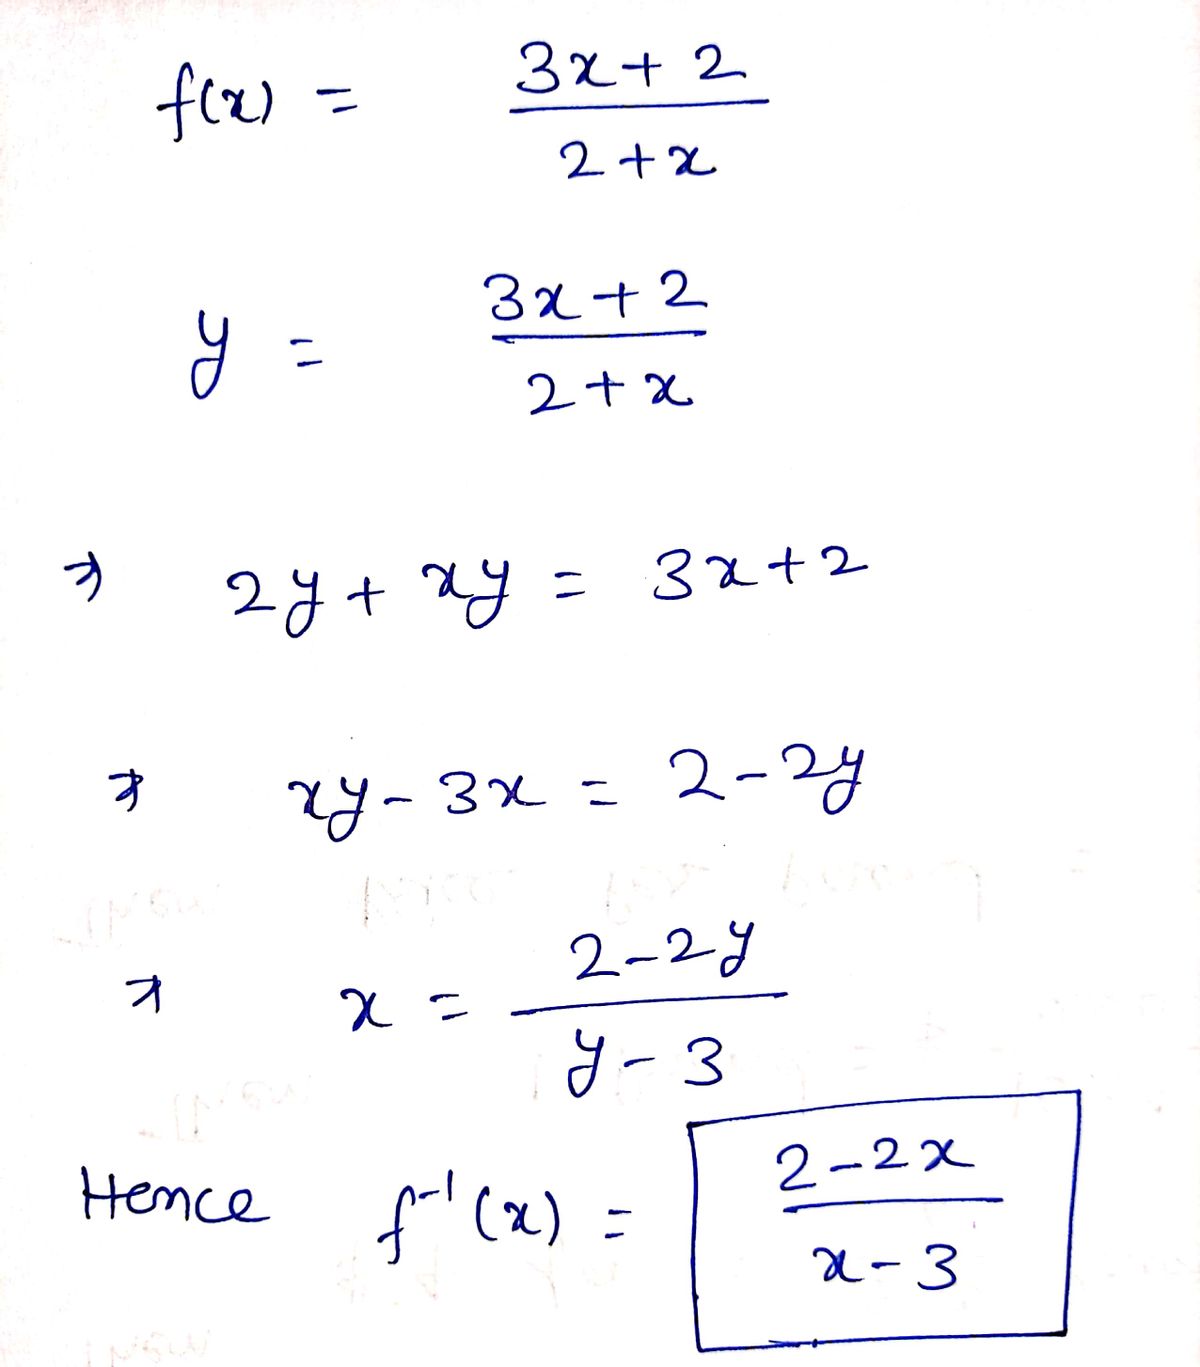 f(x) = (3x + 2)/(2 + x)
y = (3x + 2)/(2 + x)
⇒ 2y + xy = 3x + 2
⇒ xy - 3x = 2 - 2y
⇒ x = (2 - 2y)/(y - 3)
Hence f⁻¹(x) = (2 - 2x)/(x - 3)